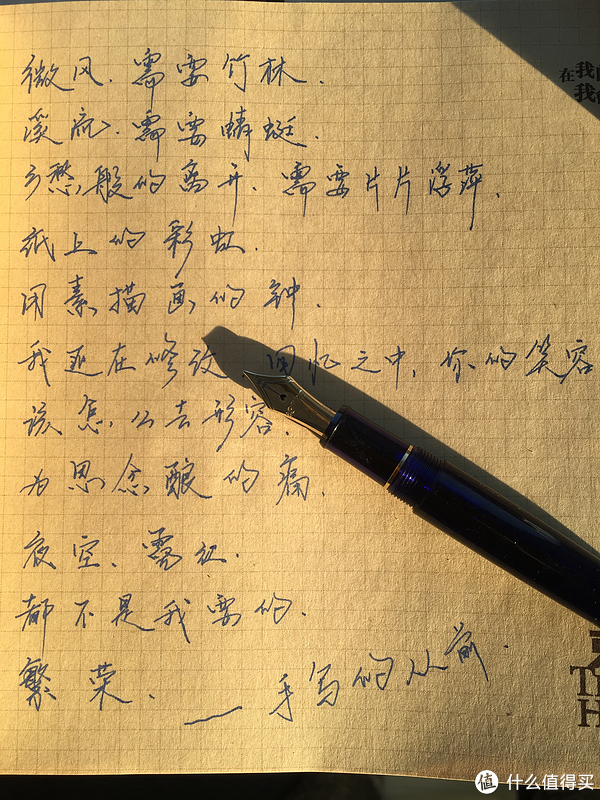 微风、需要竹林.
溪流、需要蜻蜓.
乡愁般的离开、需要片片浮萍.
纸上的彩虹.
用素描画的钟.
我 在修改 回忆之中,你的笑容
该怎么去形容.
为思念酿的痛.
夜空、霓虹.
都不是我要的.
繁荣. ——手写的从前.
在我
我
TH
H
值 什么值得买